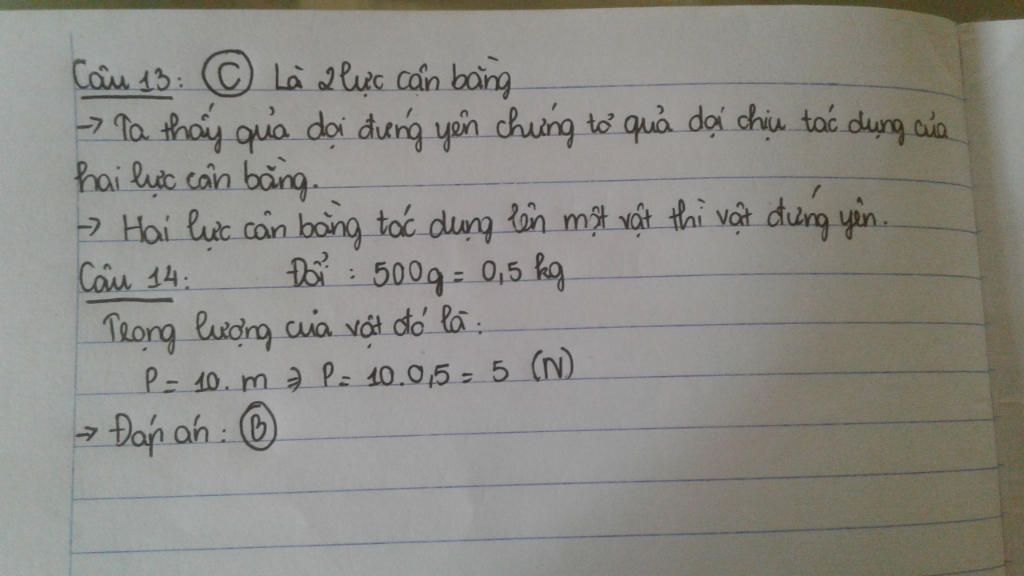 Câu 13: C Là 2 lực cân bằng
→ Ta thấy quả dọi đứng yên chứng tỏ quả dọi chịu tác dụng của
hai lực cân bằng.
→ Hai lực cân bằng tác dụng lên một vật thì vật đứng yên.
Câu 14: Đổi : 500g = 0,5 kg
Trọng lượng của vật đó là:
P = 10. m => P = 10.0,5 = 5 (N)
→ Đáp án : B